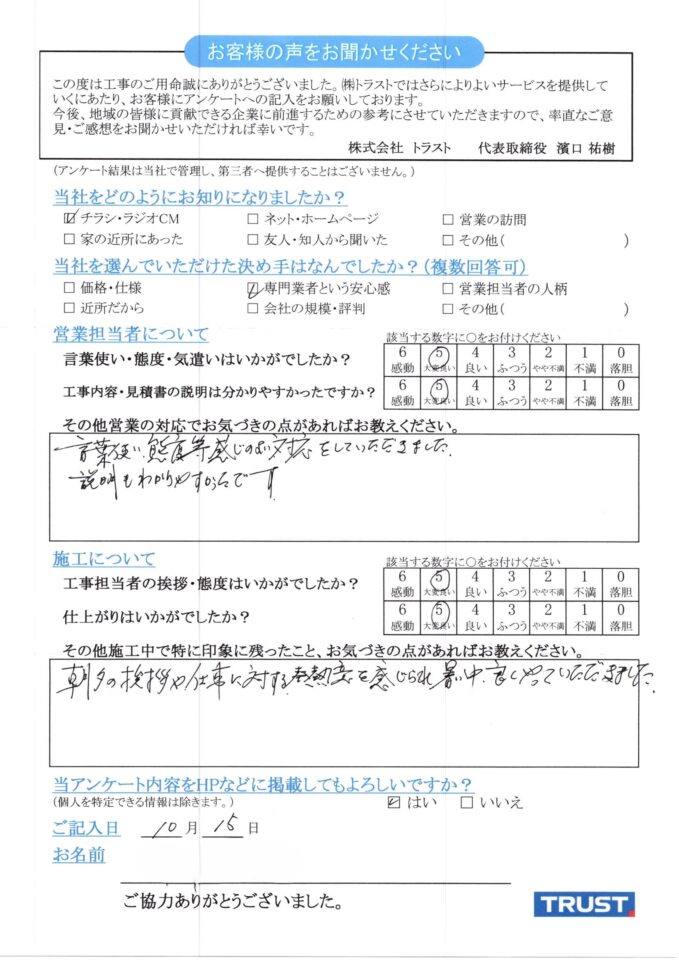 お客様の声をお聞かせください
この度は工事のご用命誠にありがとうございました。㈱トラストではさらによりよいサービスを提供して
いくにあたり、お客様にアンケートへの記入をお願いしております。
今後、地域の皆様に貢献できる企業に前進するための参考にさせていただきますので、率直なご意
見・ご感想をお聞かせいただければ幸いです。
株式会社 トラスト 代表取締役 濱口 祐樹
(アンケート結果は当社で管理し、第三者へ提供することはございません。)
当社をどのようにお知りになりましたか？
☑ チラシ・ラジオCM □ ネット・ホームページ □ 営業の訪問
□ 家の近所にあった □ 友人・知人から聞いた □ その他( )
当社を選んでいただけた決め手はなんでしたか？(複数回答可)
□ 価格・仕様 ☑ 専門業者という安心感 □ 営業担当者の人柄
□ 近所だから □ 会社の規模・評判 □ その他( )
営業担当者について
該当する数字に○をお付けください
言葉使い・態度・気遣いはいかがでしたか？
6 5 4 3 2 1 0
感動 大変良い 良い ふつう やや不満 不満 落胆
工事内容・見積書の説明は分かりやすかったですか？
6 5 4 3 2 1 0
感動 大変良い 良い ふつう やや不満 不満 落胆
その他営業の対応でお気づきの点があればお教えください。
言葉使い 態度等感じのよい対応をしていただきました.
説明もわかりやすかったです
施工について
該当する数字に○をお付けください
工事担当者の挨拶・態度はいかがでしたか？
6 5 4 3 2 1 0
感動 大変良い 良い ふつう やや不満 不満 落胆
仕上がりはいかがでしたか？
6 5 4 3 2 1 0
感動 大変良い 良い ふつう やや不満 不満 落胆
その他施工中で特に印象に残ったこと、お気づきの点があればお教えください。
朝夕の挨拶や仕事に対する熱意を感じられ 暑い中、良くやっていただきました.
当アンケート内容をHPなどに掲載してもよろしいですか？
(個人を特定できる情報は除きます。)
☑ はい □ いいえ
ご記入日 10 月 15 日
お名前
ご協力ありがとうございました。
TRUST.